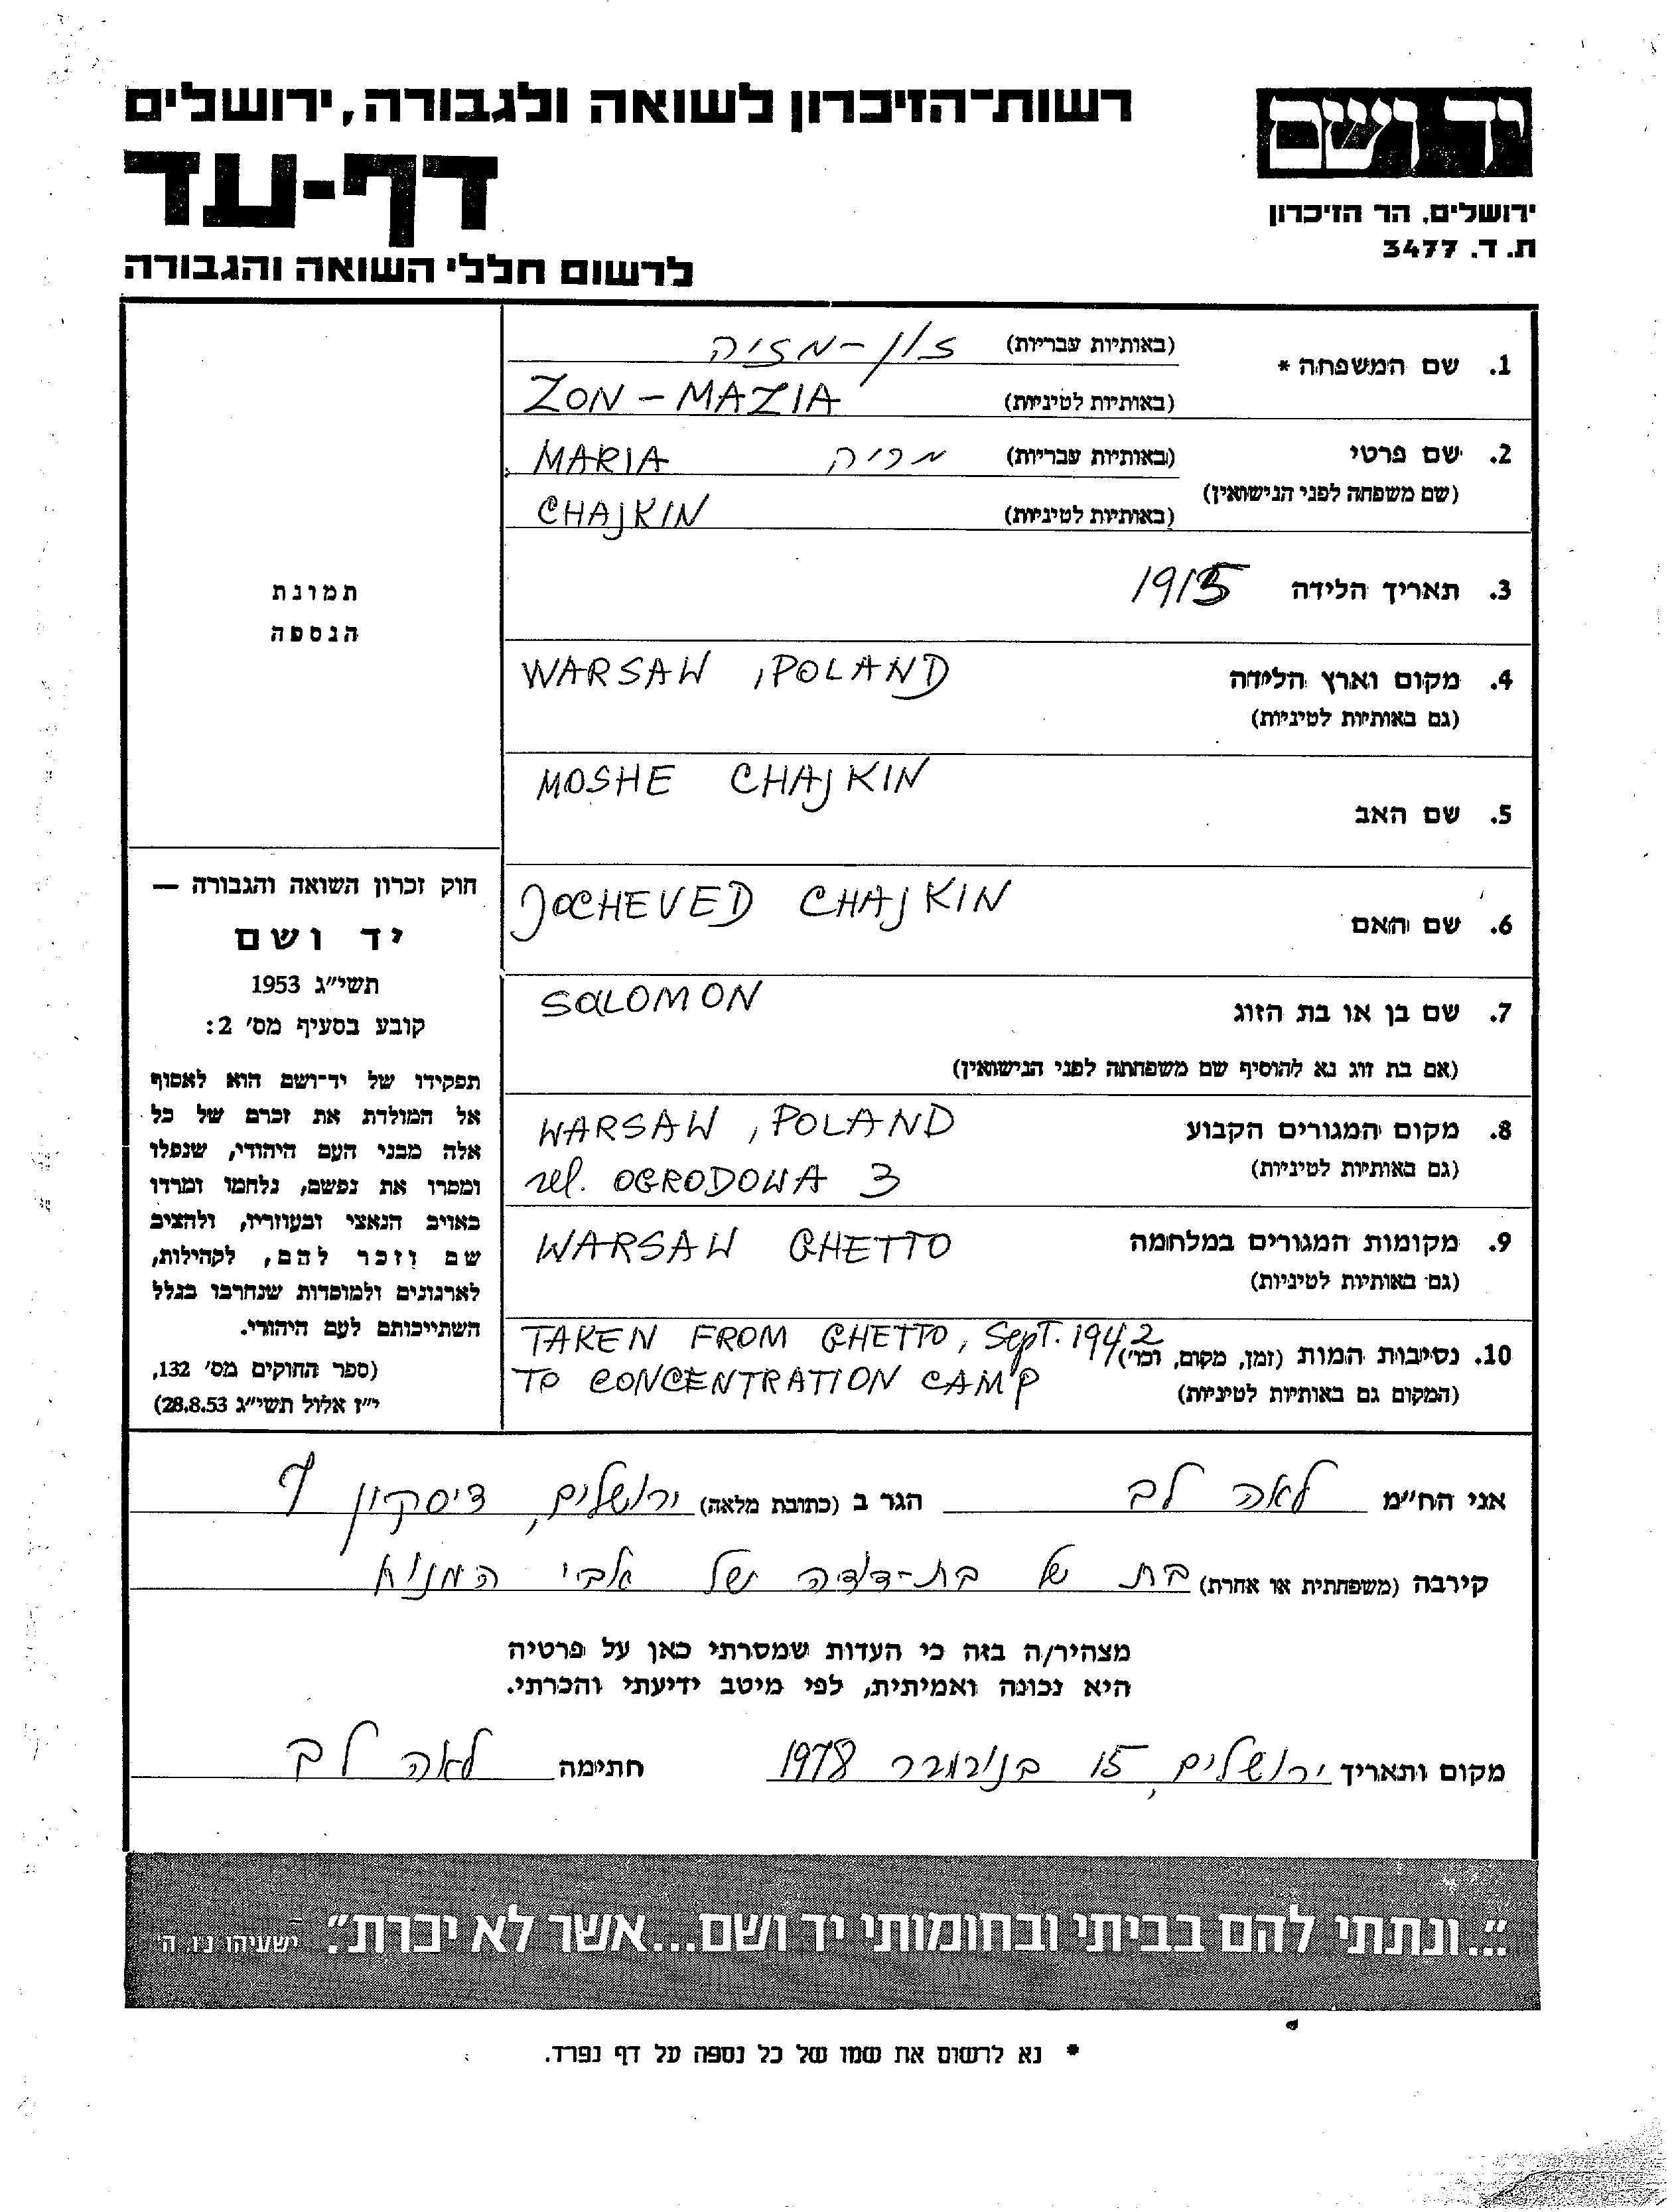 רשות־הזיכרון לשואה ולגבורה, ירושלים
דף-עד
לרשום חללי השואה והגבורה
יד ושם
ירושלים, הר הזיכרון
ת.ד. 3477
1. שם המשפחה * (באותיות עבריות) זון-מזיה
(באותיות לטיניות) ZON - MAZIA
2. שם פרטי (באותיות עבריות) מריה MARIA
(שם משפחה לפני הנישואין) (באותיות לטיניות) CHAJKIN
3. תאריך הלידה 1915
4. מקום וארץ הלידה WARSAW, POLAND
(גם באותיות לטיניות)
5. שם האב MOSHE CHAJKIN
6. שם האם JOCHEVED CHAJKIN
7. שם בן או בת הזוג SALOMON
(אם בת זוג נא להוסיף שם משפחתה לפני הנישואין)
8. מקום המגורים הקבוע WARSAW, POLAND
(גם באותיות לטיניות) OGRODOWA 3
9. מקומות המגורים במלחמה WARSAW GHETTO
(גם באותיות לטיניות)
10. נסיבות המות (זמן, מקום, וכו') TAKEN FROM GHETTO, SEPT. 1942
(המקום גם באותיות לטיניות) TO CONCENTRATION CAMP
תמונת
הנספה
חוק זכרון השואה והגבורה —
יד ושם
תשי"ג 1953
קובע בסעיף מס' 2:
תפקידו של יד־ושם הוא לאסוף
אל המולדת את זכרם של כל
אלה מבני העם היהודי, שנפלו
ומסרו את נפשם, נלחמו ומרדו
באויב הנאצי ובעוזריו, ולהציב
שם וזכר להם, לקהילות,
לארגונים ולמוסדות שנחרבו בגלל
השתייכותם לעם היהודי.
(ספר החוקים מס' 132,
י"ז אלול תשי"ג 28.8.53)
אני הח"מ לאה לב הגר ב (כתובת מלאה) ירושלים, דיסקין
קירבה (משפחתית או אחרת) בת של בת-דודה של אבי המנוח
מצהיר/ה בזה כי העדות שמסרתי כאן על פרטיה
היא נכונה ואמיתית, לפי מיטב ידיעתי והכרתי.
מקום ותאריך ירושלים, 15 בנובמבר 1978 חתימה לאה לב
"...ונתתי להם בביתי ובחומותי יד ושם...אשר לא יכרת". ישעיהו נ"ו, ה'
* נא לרשום את שמו של כל נספה על דף נפרד.